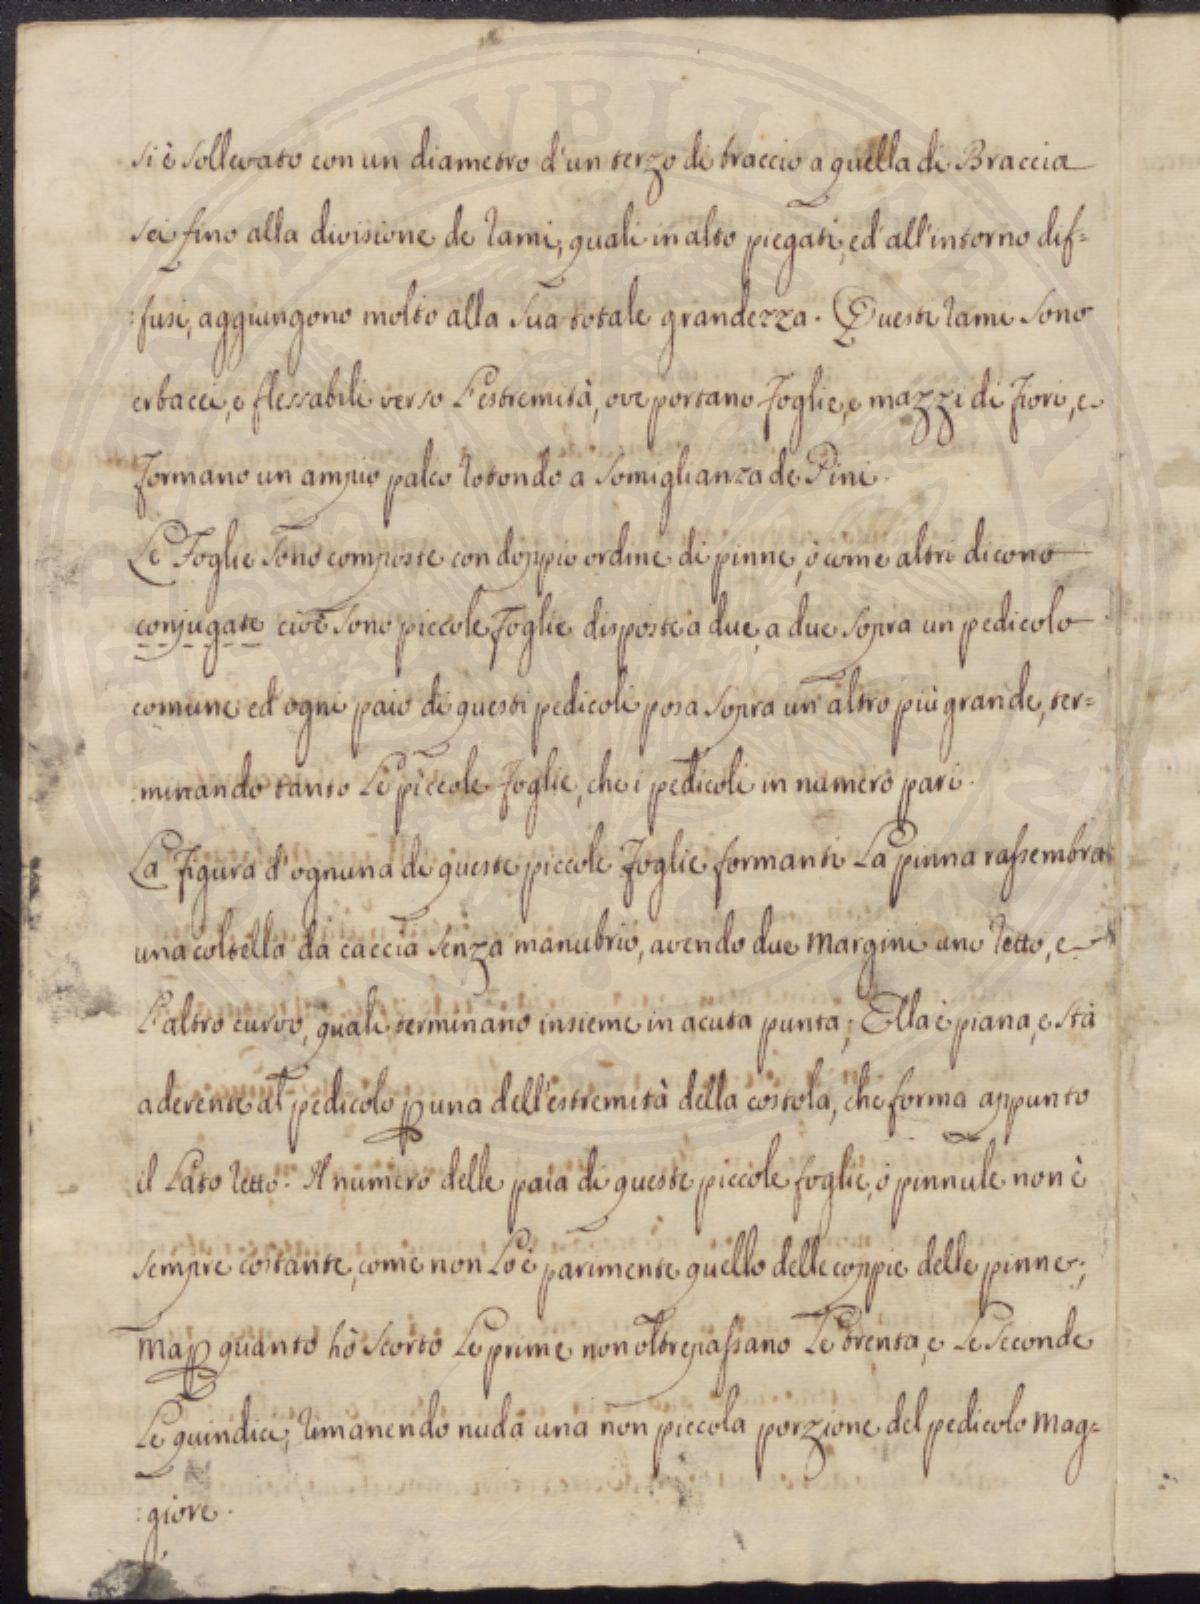 si è sollevato con un diametro d'un terzo di braccio a quella di Braccia
sei fino alla divisione de rami, quali in alto piegati, ed all'intorno dif=
:fusi, aggiungono molto alla sua totale grandezza. Questi rami sono
erbacei, e flessabili verso l'estremità, ove portano foglie, e mazzi di Fiori, e
formano un ampio palco rotondo a somiglianza de Pini.
Le Foglie sono composte con doppio ordine di pinne, ò come altri dicono
conjugate cioè sono piccole foglie disposte a due, a due sopra un pedicolo
comune ed ogni paio di questi pedicoli posa sopra un altro più grande, ter=
:minando tanto le piccole foglie, che i pedicoli in numero pari.
La figura d'ognuna di queste piccole foglie formanti la pinna rassembra
una coltella da caccia senza manubrio, avendo due margini uno retto, e
l'altro curvo, quali terminano insieme in acuta punta; Ella è piana, e stà
aderente al pedicolo p una dell'estremità della costola, che forma appunto
il lato retto. Il numero delle paia di queste piccole foglie, ò pinnule non è
sempre costante, come non lo è parimente quello delle coppie delle pinne;
ma p quanto hò scorto le prime non oltrepassano le trenta, e le seconde
le quindici, rimanendo nuda una non piccola porzione del pedicolo mag=
:giore.
PVBLICAE